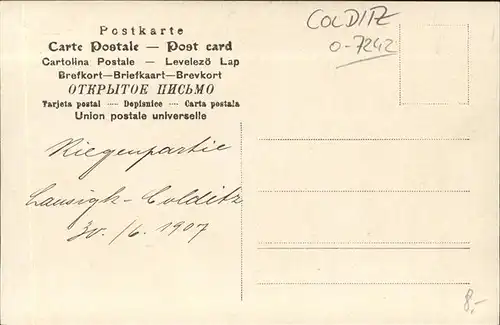 Postkarte
Carte Postale — Post card
Cartolina Postale — Levelező Lap
Brefkort—Briefkaart—Brevkort
ОТКРЫТОЕ ПИСЬМО
Tarjeta postal ---- Dopisnice ---- Carta postala
Union postale universelle
COLDITZ
0-7242
Riegenpartie
Lausigk-Colditz
30./6.1907
8,-